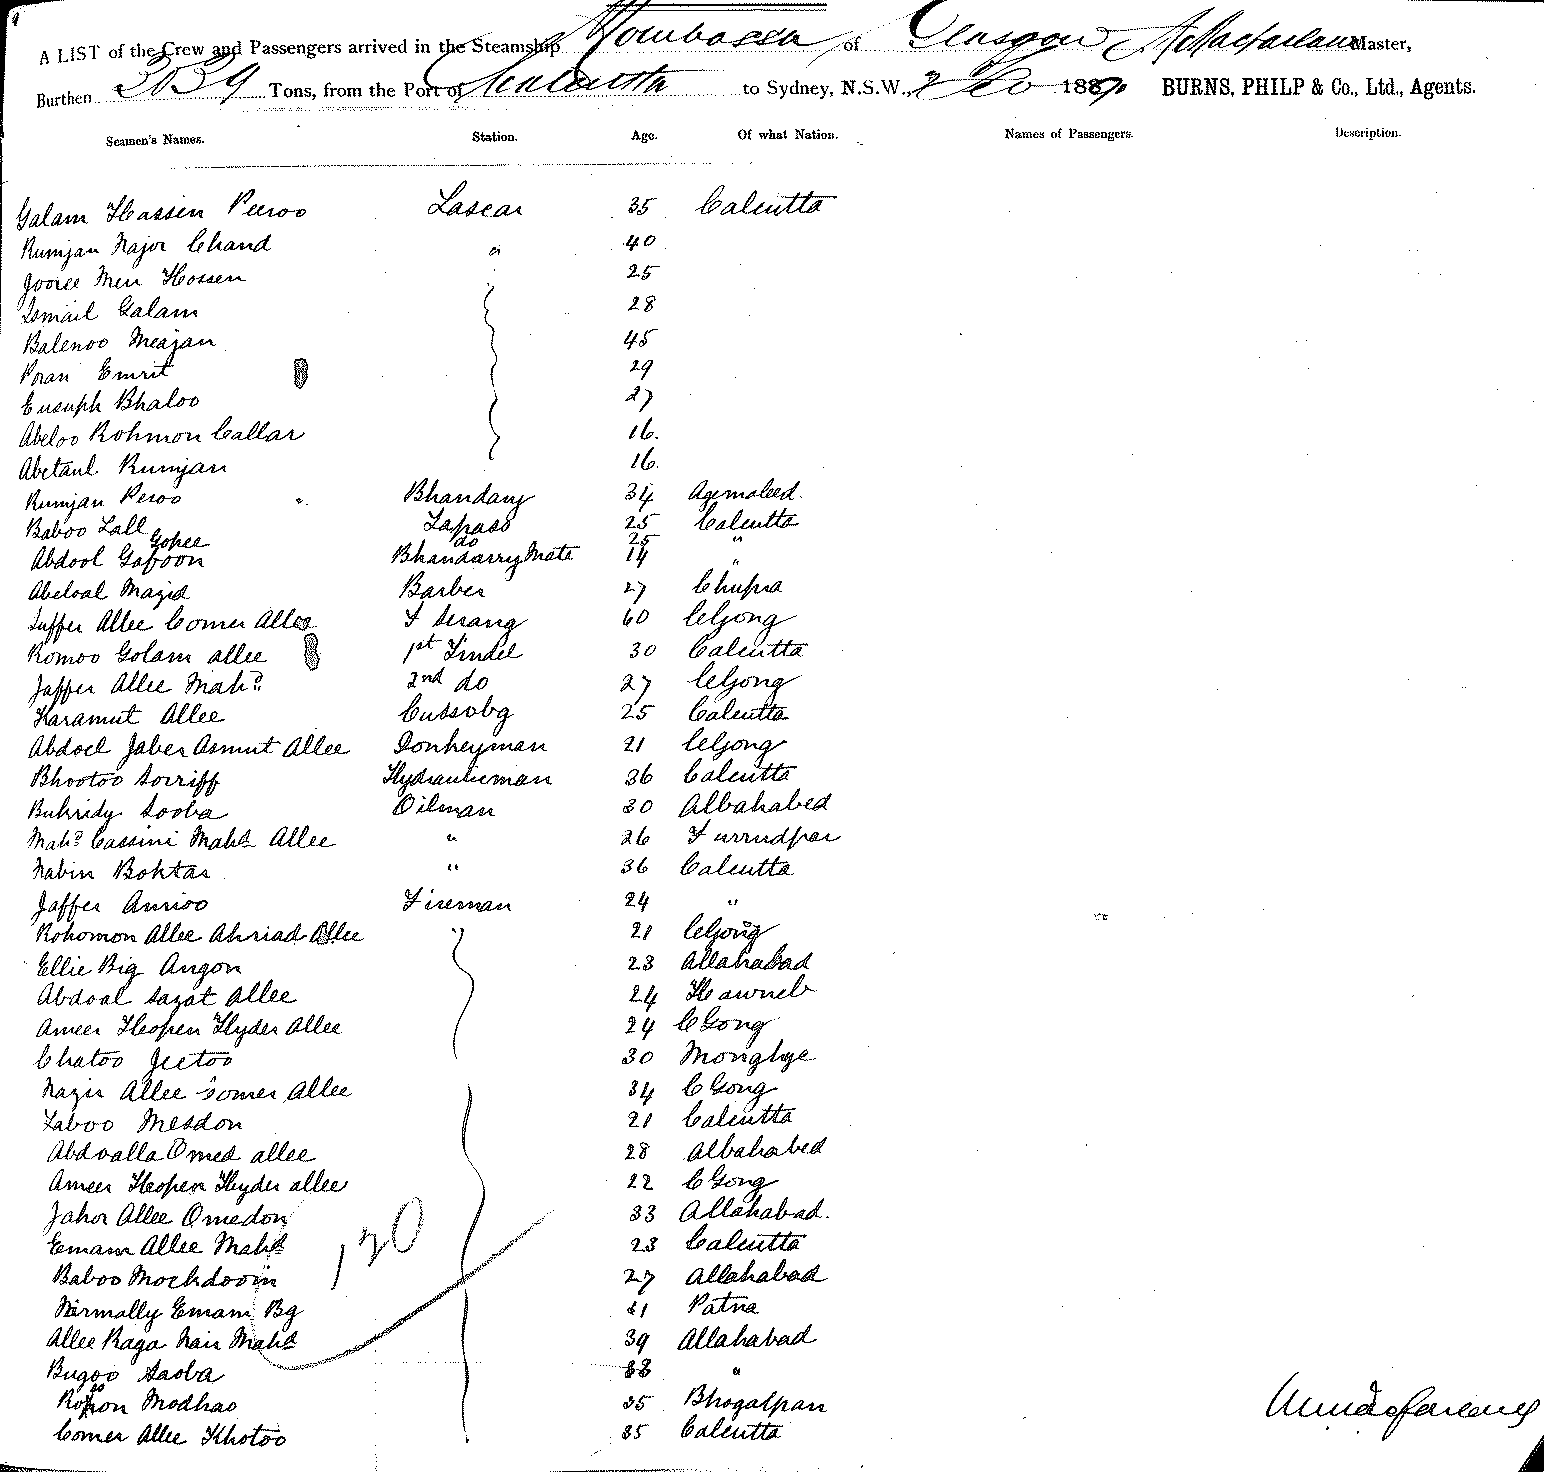 A LIST of the Crew and Passengers arrived in the Steamship Mombassa of Glasgow A McMacfarlane Master,
Burthen 2039 Tons, from the Port of Calcutta to Sydney, N.S.W., 2 Feb 1889 BURNS, PHILP & Co., Ltd., Agents.
Seamen's Names. Station. Age. Of what Nation. Names of Passengers. Description.
Galam Hassen Peeroo Lascar 35 Calcutta
Rumjan Najor Chand " 40
Jooree Meu Hossen 25
Ismail Galam 28
Balenoo Meajan 45
Poran Emrit 29
Eusuph Bhaloo 27
Abeloo Rohmon Callar 16.
Abetaul Rumjan 16.
Rumjan Peroo Bhandary 34
Baboo Lall Topass 25 Calcutta
Gopee do 25 "
Abdool Gafoon Bhandarry Mate 14 "
Abeloal Mazid Barber 27 Chupra
Suffer Allee Comer Allee F Serang 60 CGong
Romoo Golam allee 1st Tindel 30 Calcutta
Jaffer Allee Mahd 2nd do 27 CGong
Karamut Allee Cussobg 25 Calcutta
Abdoel Jaber Asmut Allee Donkeyman 21 CGong
Bhootoo Sorriff Hydraulicman 36 Calcutta
Bukridy Sooba Oilman 30 Albahabed
Mahd Cassini Mahd Allee " 26 Furrudpor
Nabin Boktar " 36 Calcutta
Jaffer Amroo Fireman 24 "
Rohomon Allee Ahriad Allee " 21 CGong
Ellie Big Angon 23 Allahabad
Abdoal Sazat Allee 24
Ameer Hopen Hyder Allee 24 CGong
Chatoo Jeetoo 30 Monghye
Nazir Allee Somer Allee 34 CGong
Laboo Mesdon 21 Calcutta
Abdoalla Omed allee 28 Albahabed
Ameer Hopen Hyder allee 22 CGong
Jahor Allee Omedon 33 Allahabad.
Emam Allee Mahd 23 Calcutta
130
Baboo Mochdooin 27 Allahabad
Nirmally Emam Bg 31 Patna
Allee Raga Nair Mahd 39 Allahabad
Bugoo Saoba 38 "
Modhao 35 Bhogalpan
Comer Allee Khotoo 35 Calcutta